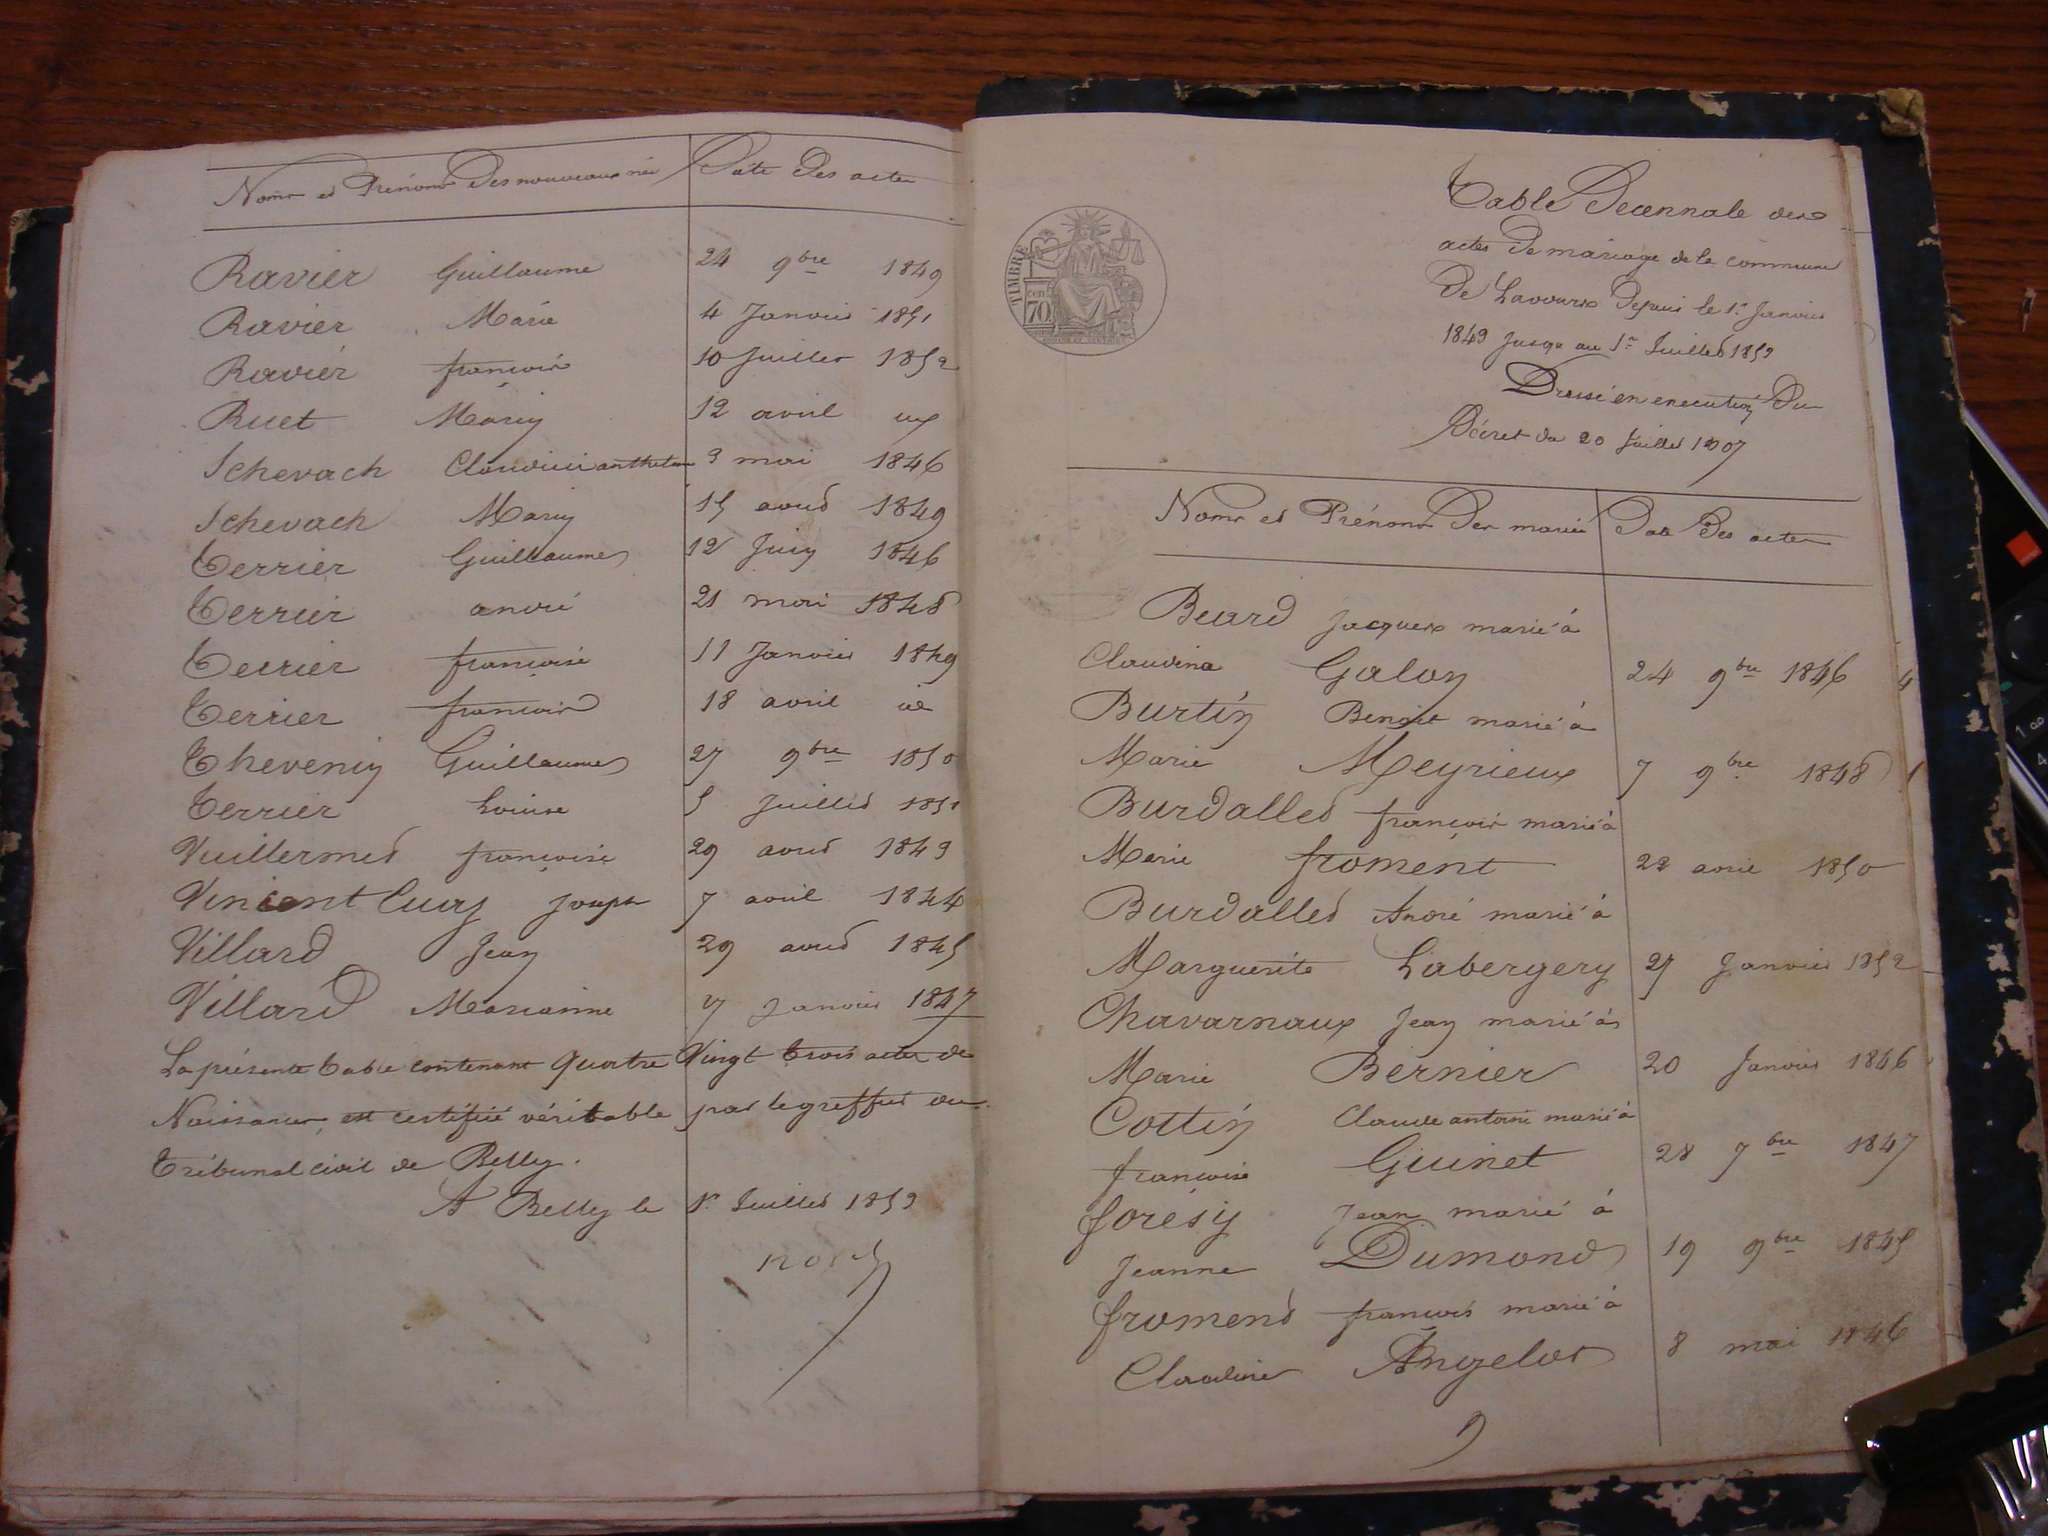 Noms et Prénoms Des nouveaux née Date Des actes
Ravier Guillaume 24 9bre 1849
Ravier Marie 4 Janvier 1851
Ravier françois 10 Juillet 1852
Ruet Marie 12 avril
Schevach anthelme 9 mai 1846
Schevach Marie 15 aout 1849
Terrier Guillaume 12 Juin 1846
Terrier andré 21 mai 1848
Terrier françoise 11 Janvier 1849
Terrier françois 18 avril id
Thevenin Guillaume 27 9bre 1850
Terrier Louise 5 Juillet 1851
Vuillermet françoise 29 aout 1849
Vincent Cuaz Joseph 7 avril 1844
Villard Jean 29 aout 1845
Villard Marianne 7 Janvier 1847
La présente table contenant quatre Vingt trois actes de
Naissances, est certifiée véritable par le greffier du
Tribunal civil de Belley.
A Belley le 1r Juillet 1853
TIMBRE
cent
70
Table Décennale des
actes De mariage de la commune
De Lavours Depuis le 1r Janvier
1843 jusqu au 1r Juillet 1853
Dressé en execution Du
Décret du 20 Juillet 1807
Noms et Prénoms Des mariés Date Des actes
Beard Jacques marié à
Claudine Galon 24 9bre 1846
Burtin Benoit marié à
Marie Meyrieux 7 9bre 1848
Burdallet françois marié à
Marie froment 22 avril 1850
Burdallet André marié à
Marguerite Labergery 27 Janvier 1852
Chavarnaux Jean marié à
Marie Bernier 20 Janvier 1846
Cottin Claude antoine marié à
françoise Guinet 28 7bre 1847
foresy Jean marié à
Jeanne Dumond 19 9bre 1845
froment françois marié à
Claudine Angelot 8 mai 1846